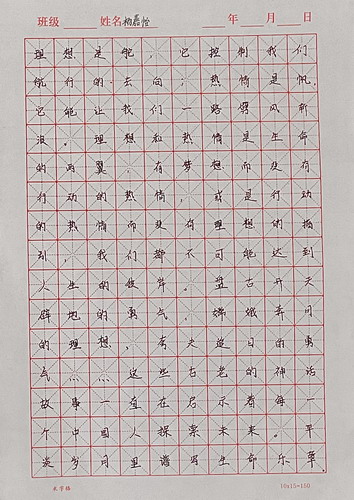 班级 姓名 杨嘉怡 年 月 日
理想是舵，它控制我们
航行的去向；热情是帆，
它能让我们一路劈风斩
浪。理想和热情是生命
的两翼，有梦想而没有
行动的热情，或是行动
的热情而没有理想的指
引，我们都不可能达到
人生的彼岸。盘古开天
辟地的勇气，嫦娥奔月
的理想，夸父追日的勇
气……这些古老的神话
故事一直在启示着每一
个中国人探索未来。平
淡岁月里谱写生命乐章。
米字格 10x15=150